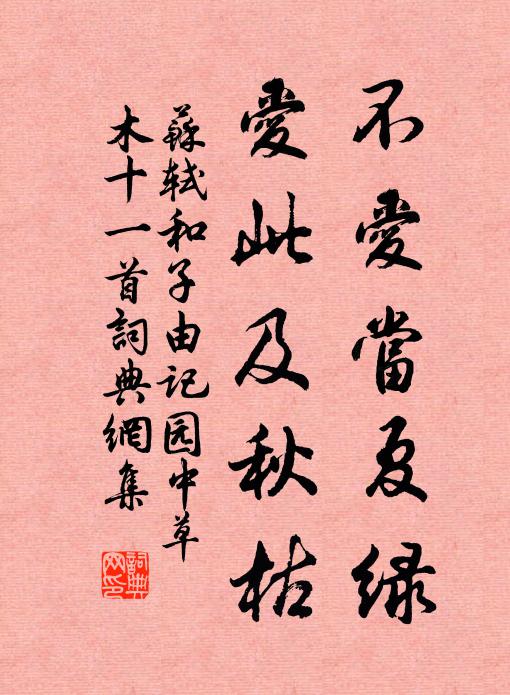 不愛當夏綠
愛此及秋枯
蘇軾和子由记园中草
木十一首詞典網集
詞典
网印